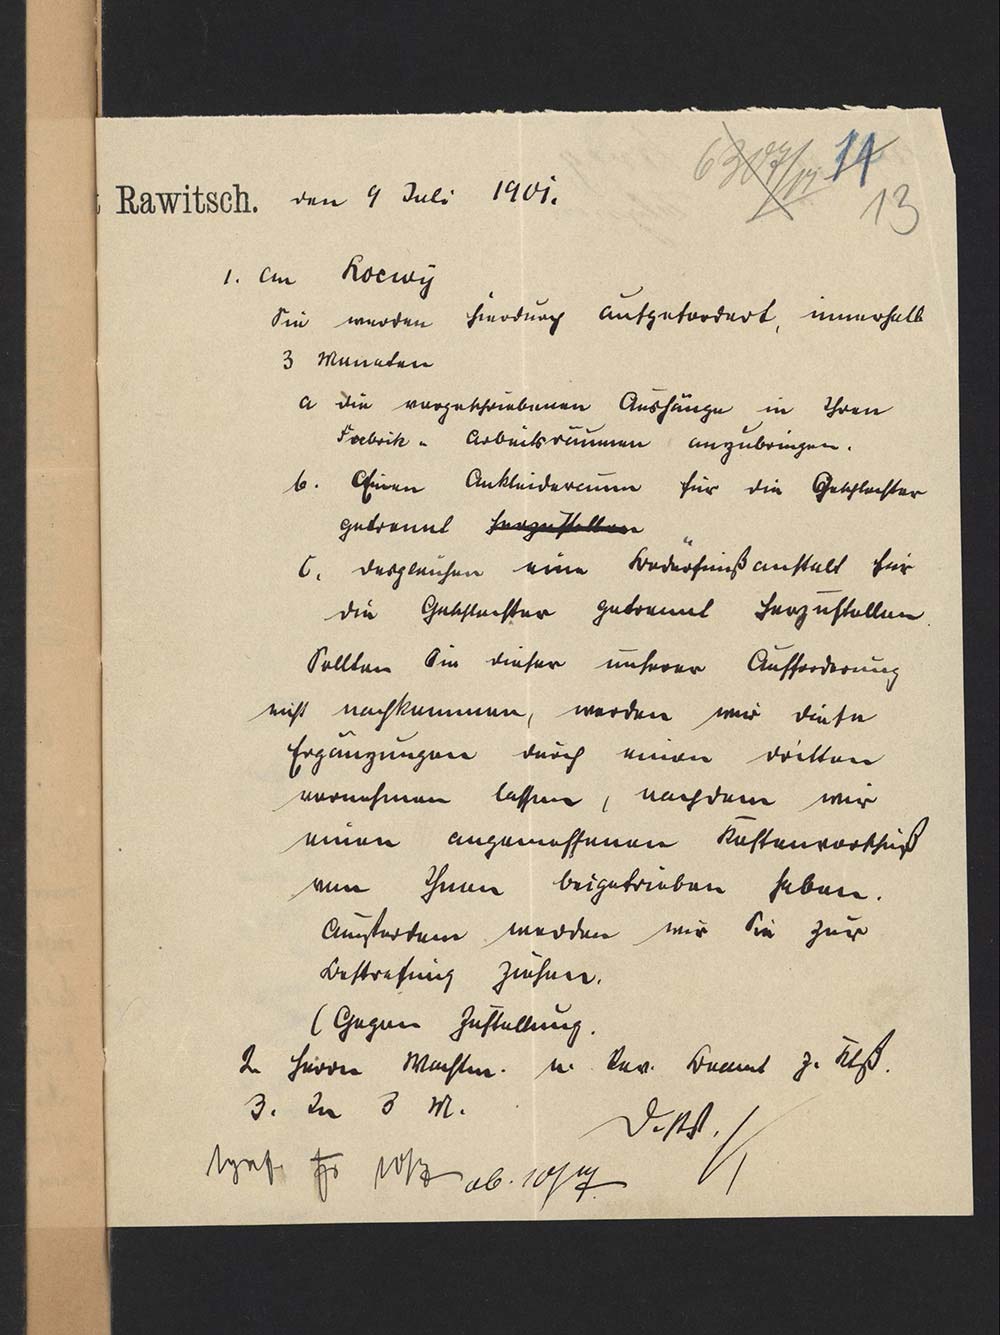 6307/01 14
13
t Rawitsch. den 9 Juli 1901.
1. An Loewy
Sie werden hierdurch aufgefordert, innerhalb
3 Monaten
a die vorgeschriebenen Aushänge in Ihren
Fabrik- Arbeitsräumen anzubringen.
b. Einen Ankleideraum für die Geschlechter
getrennt herzustellen
c. desgleichen eine Bedürfnißanstalt für
die Geschlechter getrennt herzustellen.
Sollten Sie dieser unserer Aufforderung
nicht nachkommen, werden wir diese
Ergänzungen durch einen dritten
vornehmen lassen, nachdem wir
einen angemessenen Kostenvorschuß
von Ihnen beigetrieben haben.
Außerdem werden wir Sie zur
Bestrafung ziehen.
(Gegen Zustellung.
2. Herrn Wachtm. u. Rev. Beamt z. Ktß.
3. In 3 M.
D. M.
ab. 10/7